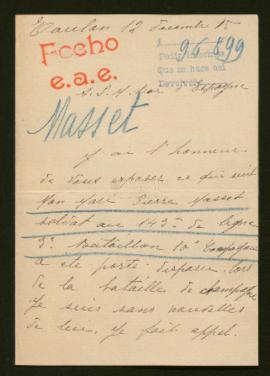 Toulon 12 décembre 15
Fecho
e.a.e.
A
96.899
Que se hace así
Devolver
S. S. M. Roi d'Espagne
Masset
J'ai l'honneur
de vous exposer ce qui suit
Mon Mari Pierre Masset
soldat au 143e de ligne
3e Bataillon 10e Compagnie
a été porté disparu lors
de la bataille de champagne
Je suis sans nouvelles
de lui, je fait appel